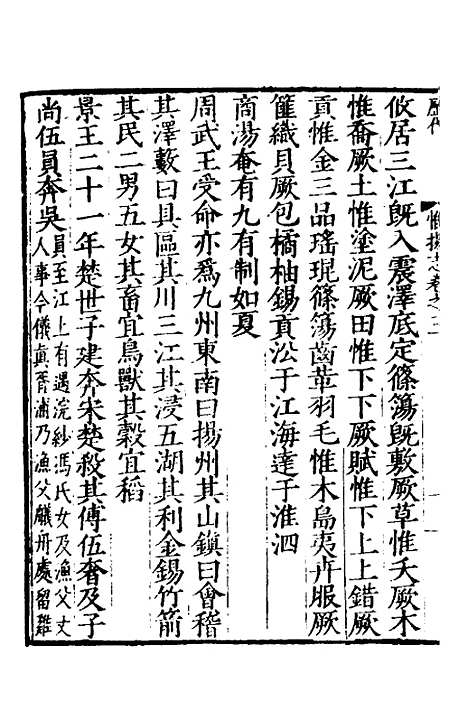 攸居三江旣入震澤底定篠簜旣敷厥草惟夭厥木
惟喬厥土惟塗泥厥田惟下下厥賦惟下上上錯厥
貢惟金三品瑤琨篠簜齒革羽毛惟木島夷卉服厥
篚織貝厥包橘柚錫貢㳂于江海達于淮泗
商湯奄有九有制如夏
周武王受命亦爲九州東南曰揚州其山鎭曰會稽
其澤藪曰具區其川三江其浸五湖其利金錫竹箭
其民二男五女其畜宜鳥獸其糓宜稻
景王二十一年楚世子建奔宋楚殺其傅伍奢及子
尚伍員奔吳員至江上有遇浣紗馮氏女及漁父丈
人事今儀眞胥浦乃漁父艤舟處留難